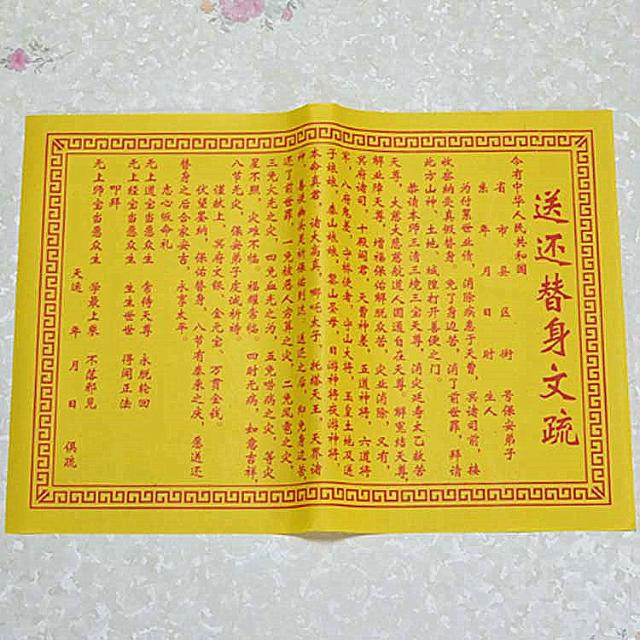 送还替身文疏
今有中华人民共和国
省 市 县 区 街 号保安弟子
集 年 月 日 时 生人
为付累世业债，消除疾患于天曹，冥诸司前，接
收盛纳受真假替身。免了身边苦，消了前世罪，拜请
此方山神、土地、城隍打开善便之门。
恭请本师三清三境三宝天尊，消灾延寿太乙救苦
天尊，大慈大悲慈航道人圆通自在天尊。解冤结天尊，
解业障天尊，增福保佑解脱众苦，灾业消除，又有，
冥府诸司，十殿阎君，天曹神差，五道神将，六道将
军，八府鬼差，守桥使者，守山大将，玉皇土地及送
子娘娘，泰山娘娘，黎山老母，日游神将夜游神将，
本命真君，诸大高真，哪吒太子，托塔天王，天界诸
还了前世罪，一免被恶人劳算之灾，二免风雹之灾，
三免火光之灾，四免血光之为，五免唔病之灾，等灾
星不照，灾难不临。福耀常临。四时无病，如意吉祥，
八节无灾，保安弟子虔诚祈祷。
谨献上，冥府文银，金元宝，万贯金钱。
伏望鉴纳，保佑替身，八节有泰来之庆，愿送还
替身之后合家安吉，永享太平。
志心皈命礼
无上道宝当愿众生 常侍天尊 永脱轮回
无上经宝当愿众生 生生世世 得闻正法
叩拜
无上师宝当愿众生 学最上乘 不落邪见
天运 年 月 日 俱疏